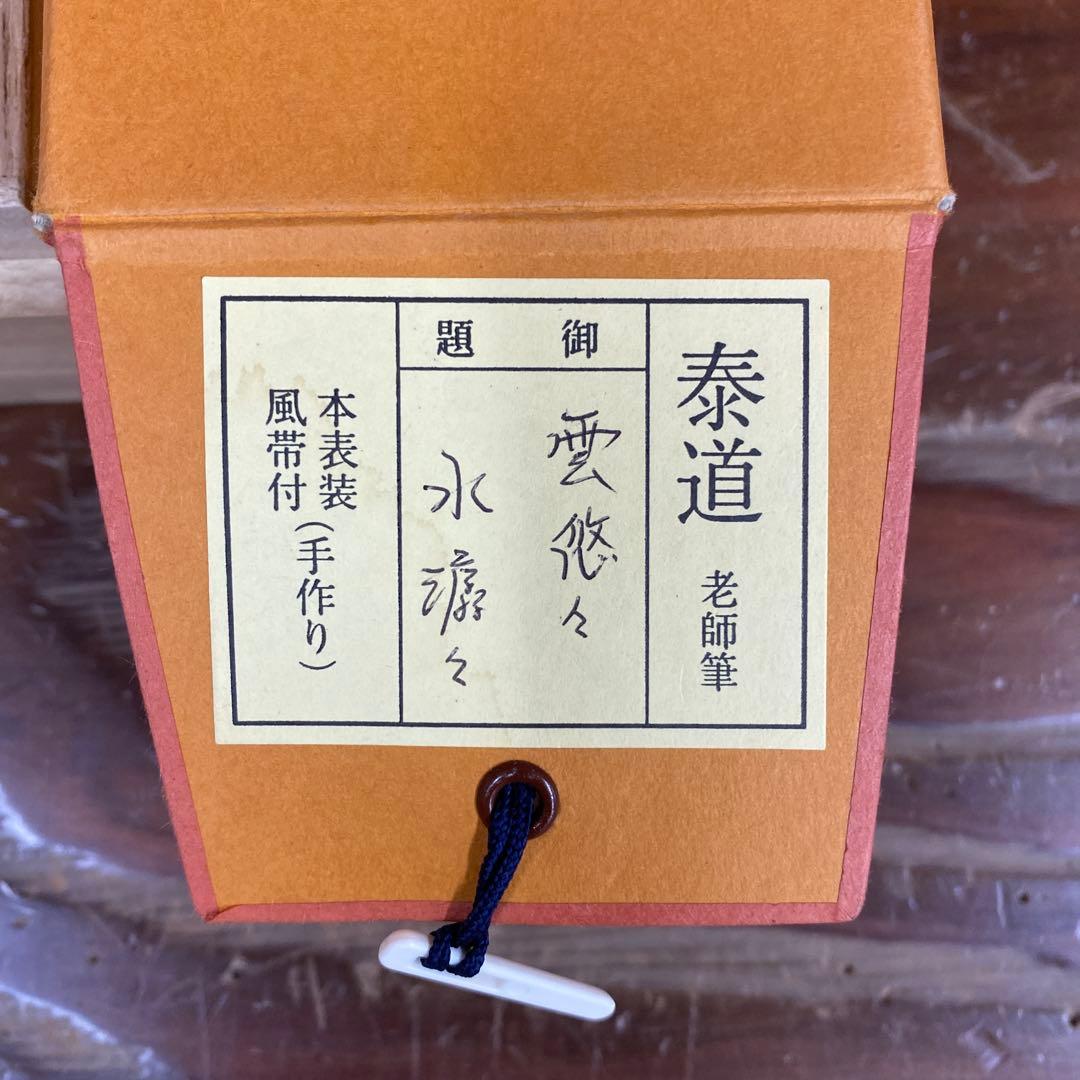 泰道 老師筆
御題
雲悠々
水潺々
本表装
風帯付
(手作り)